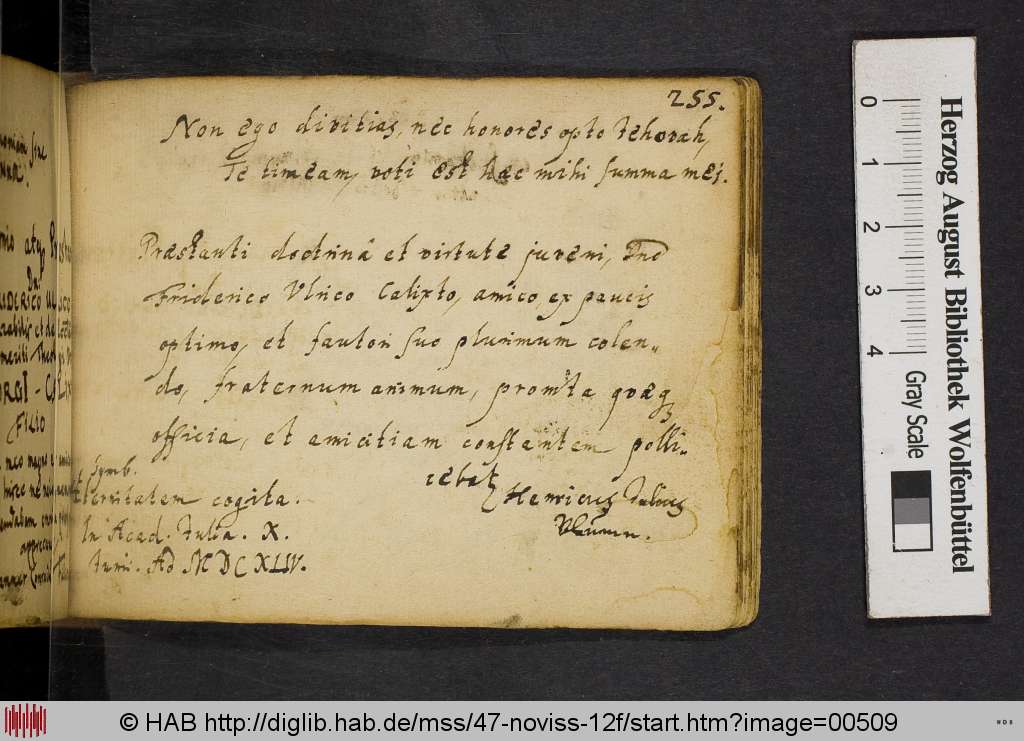 255.
Non ego divitias, nec honores opto Jehovah,
Te timeam, voti est haec mihi summa mei.
Praestanti doctrinâ et virtute juveni, Dno
Friderico Ulrico Calixto, amico ex paucis
optimo, et fautori suo plurimum colen„
do, fraternum animum, promta quaeq
officia, et amicitiam constantem polli„
cebat
Henricus Julius
Blumn.
Symb.
AEternitatem cogita.
In Acad. Julia. X.
Juni. Ad MDCXLIV.
FILIO
Herzog August Bibliothek Wolfenbüttel
0 1 2 3 4 Gray Scale
© HAB http://diglib.hab.de/mss/47-noviss-12f/start.htm?image=00509